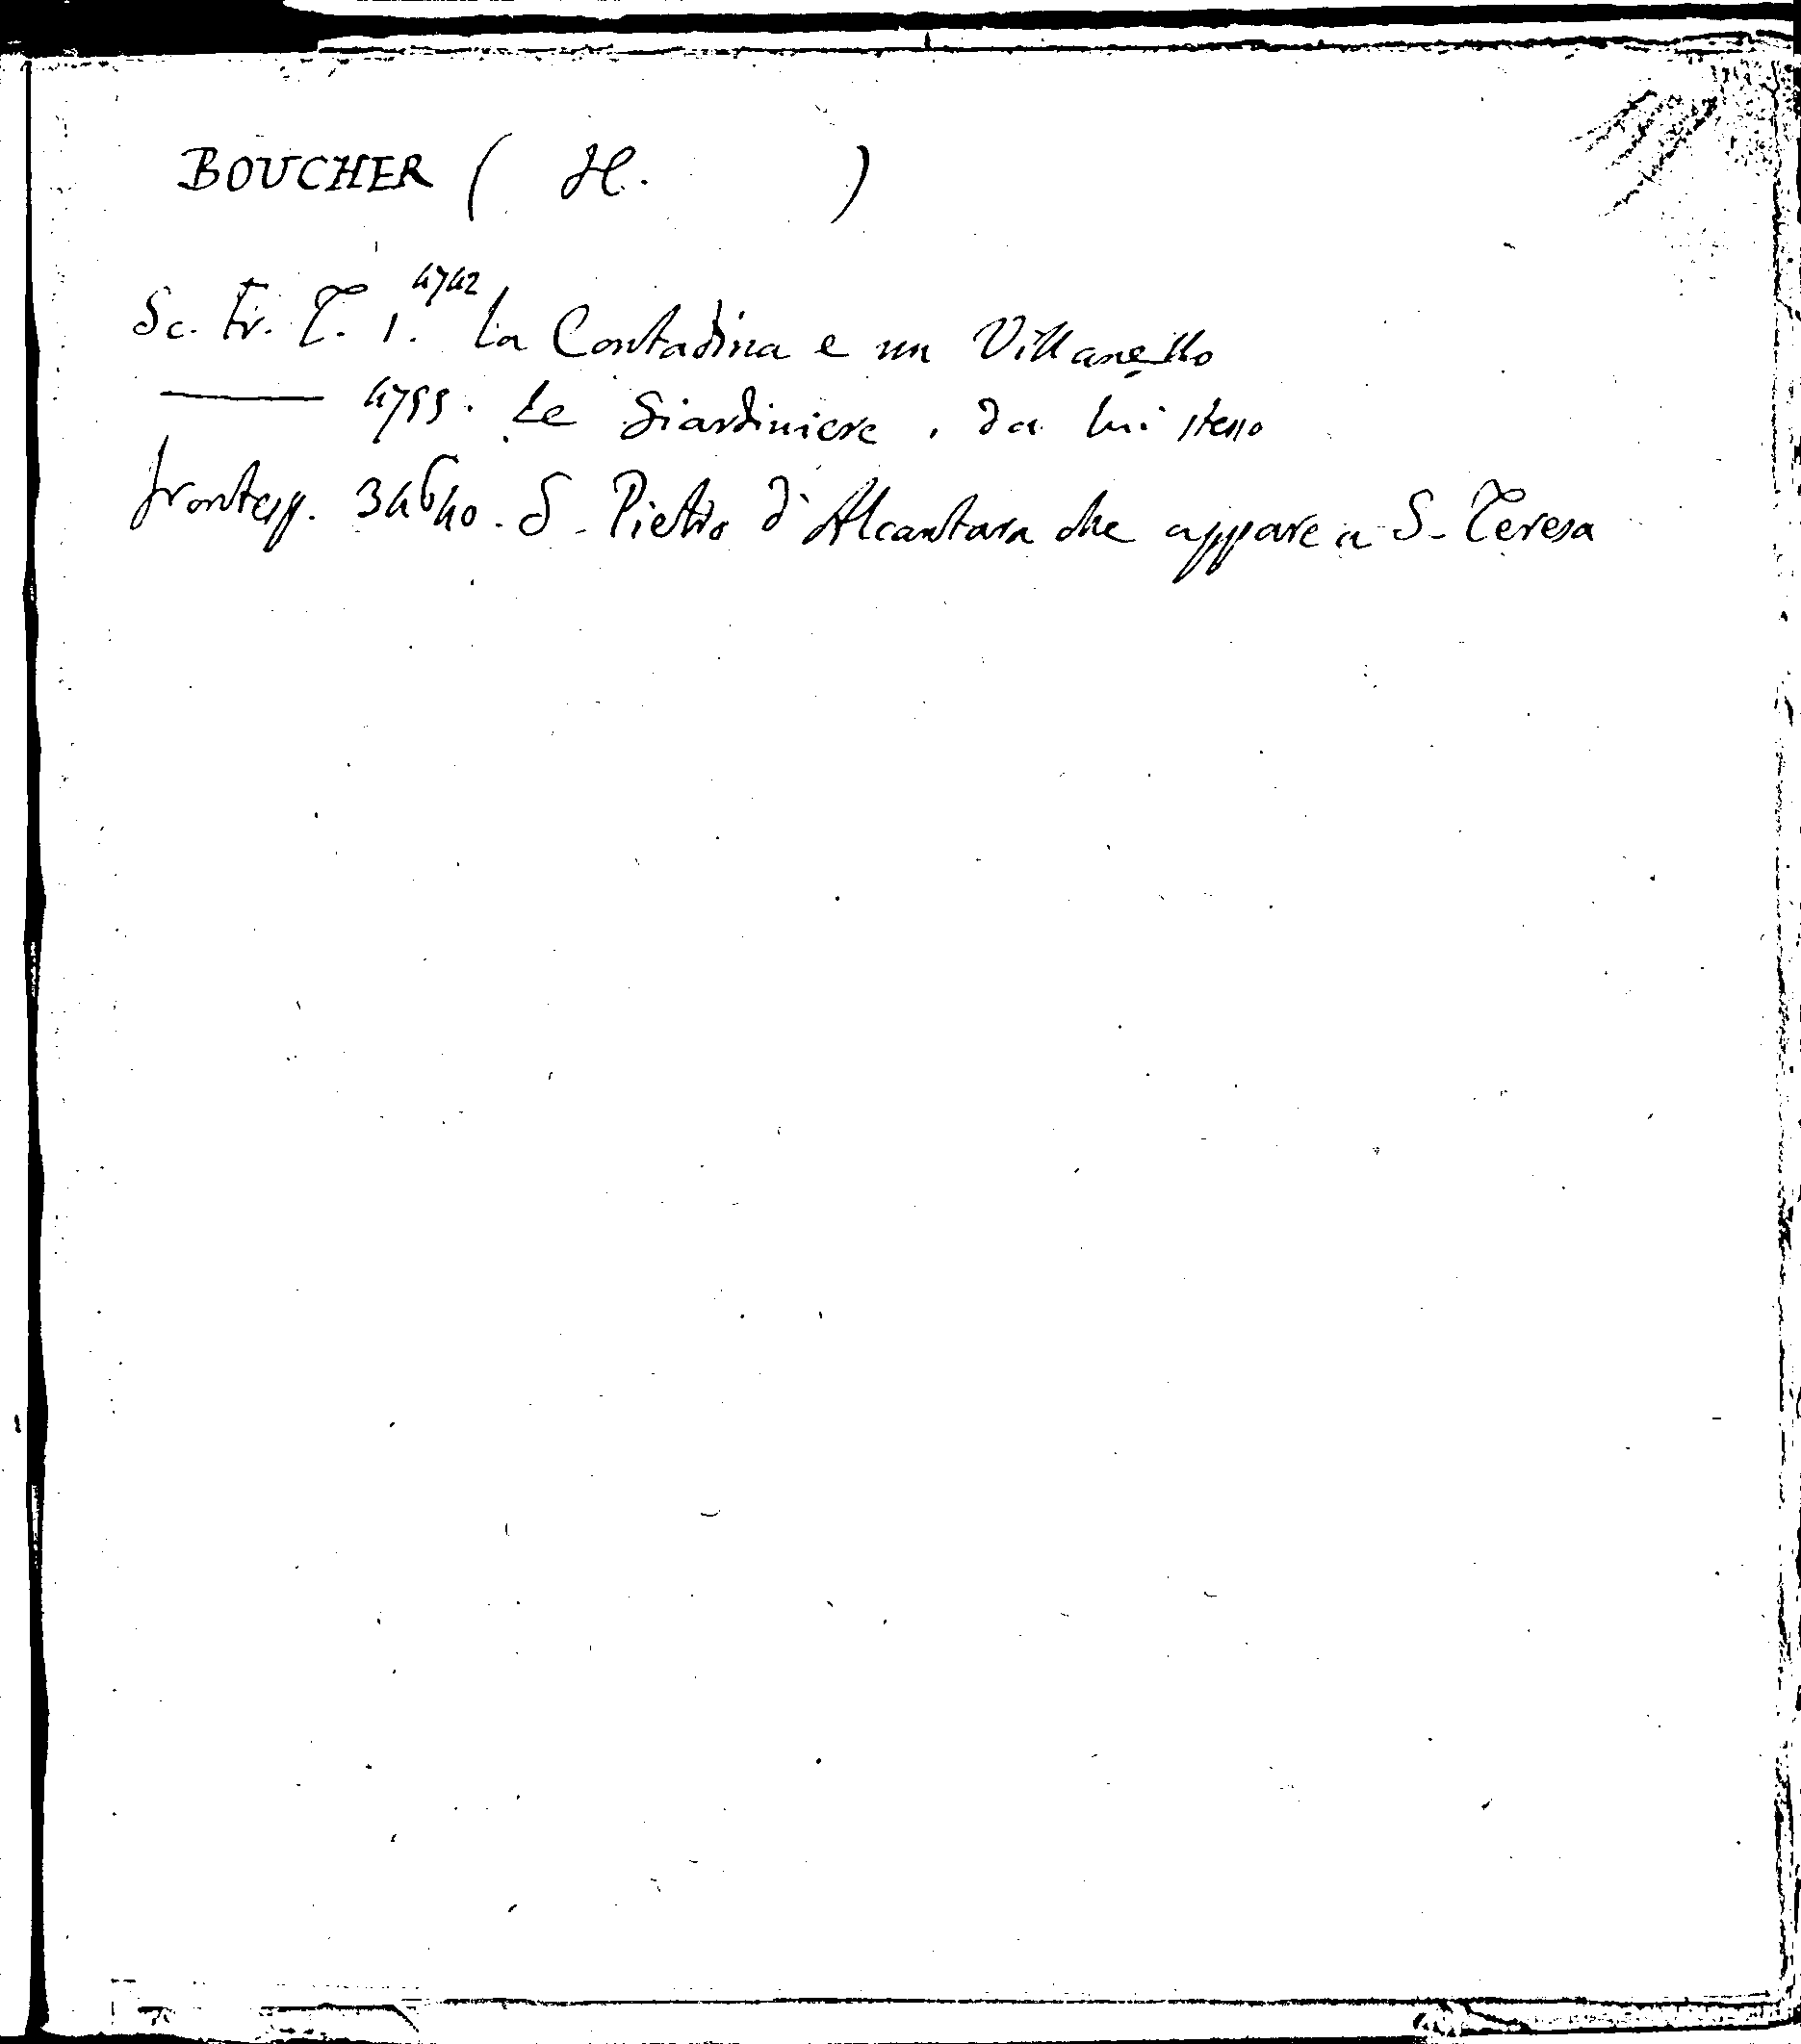 BOUCHER ( H. )
Sc. Fr. T. 1. 4742 La Contadina e un Villanello
—— 4755. Le Giardiniere, da lui stesso
frontesp. 34640. S. Pietro d'Alcantara che appare a S. Teresa